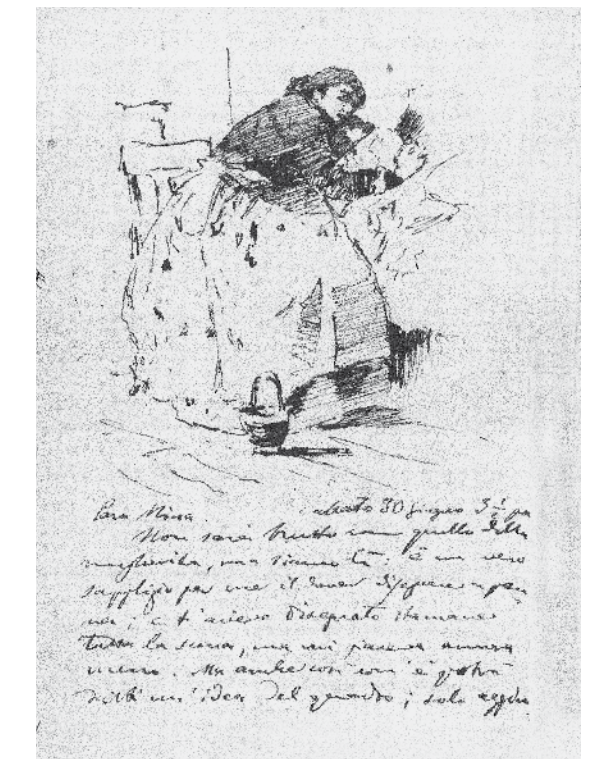 Cara Nina sabato 30 giugno 3½ po
Non sarà brutto come quello della
margherita, ma siamo là: è un vero
supplizio per me il dover disegnare a pen
na; e t'avevo disegnato stamane
tutta la scena, ma mi pareva ancora
meno. Ma anche così com'è potrà
darti un'idea del quadro; solo